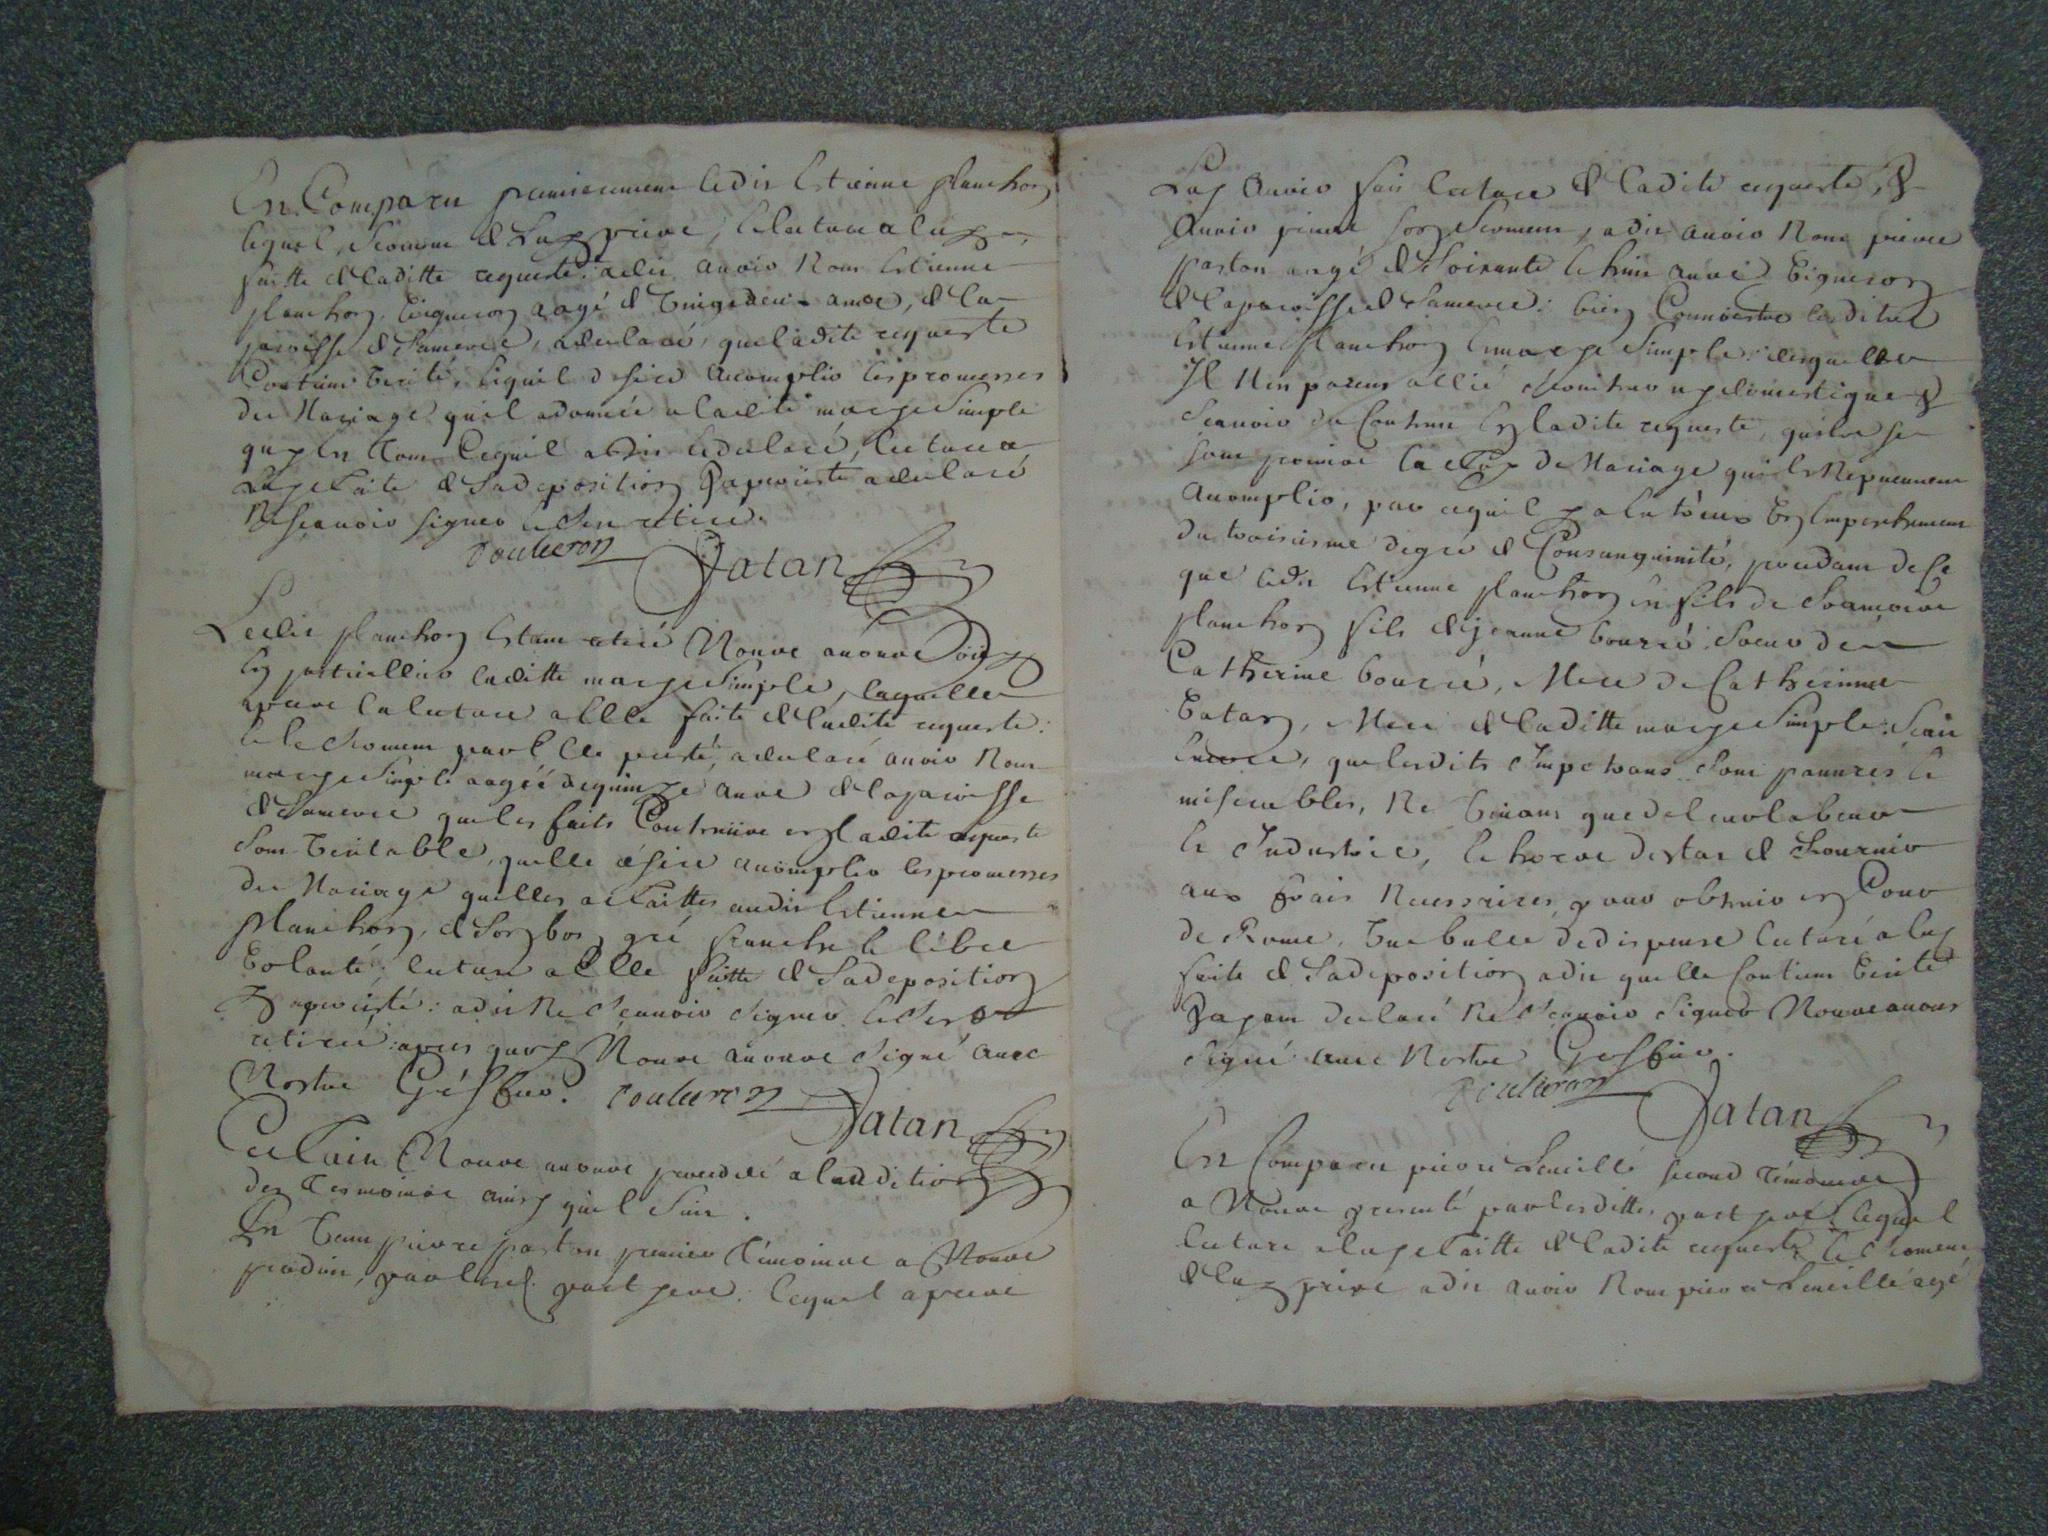 Est Comparu premierement ledit Estienne planchon
lequel, serment de luy prins, et lecture a luy
faitte de laditte requeste: a dit avoir nom Estienne
planchon, vigneron aagé de vingt deux ans, de la
paroisse de , a declaré, que ladite requeste
Contient verité, et quil desire accomplir les promesses
de Mariage quil a donnée a ladite marye Simple
quy est tout ce quil a dit et declaré, lecture a
luy faite de sa deposition y a persisté a declaré
ne sçavoir signer et s'en retiré.
couderon Jatan
Ledit planchon Estant retiré Nous avons ouy
en particullier laditte marye Simple, laquelle
apres la lecture a Elle faite de ladite requeste:
et le serment par Elle presté, a declaré avoir nom
marye Simple aagée de quinze ans de la paroisse
de que les faits Contenus en ladite requeste
sont veritable, quelle desire accomplir les promesses
de Mariage quelles a faittes audit Estienne
planchon, de son bon gré franche et libre
volonté; lecture a Elle faitte de sa deposition
y a persisté: a dit ne sçavoir signer et s'est
retirée: apres quoy Nous avons signé avec
Nostre Greffier. couderon Jatan
Ce fait Nous avons procedé a laudition
des tesmoins ainsy quil suit.
Est venu pierre paston premier témoins a Nous
produit, par lesd. partyes: lequel apres
luy avoir fait lecture de ladite requeste, &
avoir prins son serment, a dit avoir nom pierre
paston aagé de soixante et huit ans vigneron
de la paroisse de : bien Connoistre lesdites
Estienne planchon et marye Simple: desquelles
Il n'est parent allié serviteur ny domestique &
sçavoir du Contenu En ladite requeste, quils se
sont promis la foy de Mariage quils Ne peuvent
accomplir, par ce quil y a entreux Un Empeschement
du troisiesme degré de Consanguinité, procedant de ce
que ledit Estienne planchon est fils de
planchon fils de jeanne bourré soeur de
Catherine bourré, Mere de Catherinne
, Mere de laditte marye Simple: sçait
encore, que lesdits Impetrans sont pauvres et
miserables, Ne vivans que de leur labeur
et Industrie, et hors destat de fournir
aux frais necessaires, pour obtenir en Cour
de Rome, Une bulle de dispense lecture a luy
faite de sa deposition a dit quelle Contient verité
& ayant declaré ne sçavoir signer Nous avons
signé avec Nostre Greffier.
couderon Jatan
Est Comparu pierre second témoins
a Nous presenté par lesdittes partyes, lequel
lecture a luy faitte de ladite requeste, et serment
de luy prins a dit avoir nom pierre agé